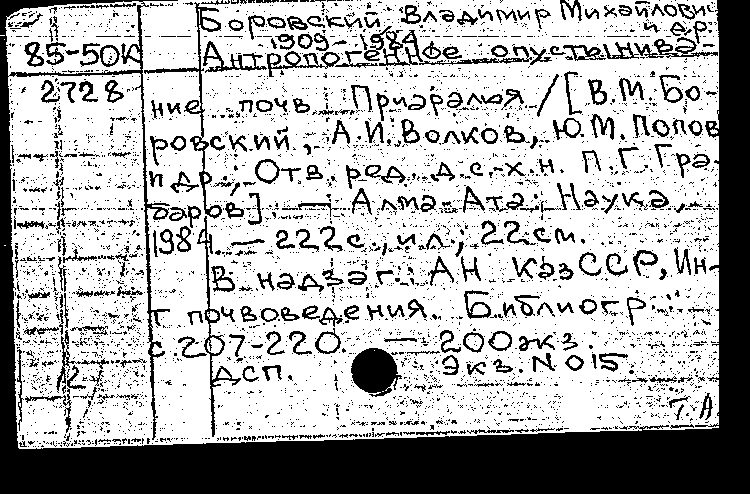 Боровский Владимир Михайлови
и др.
1909-1984
85-50К Антропогенное опустынива-
2728 ние почв Приаралья / [В.М. Бо-
ровский, А.И. Волков, Ю.М. Попов
и др.; Отв. ред. д.с.-х.н. П.Г. Гра-
баров]. — Алма-Ата: Наука,
1984. — 222 с., ил.; 22 см.
В надзаг.: АН КазССР, Ин-
т почвоведения. Библиогр.:
с. 207-220. — 200 экз.
2 ДСП. Экз. N 015.
Т. А